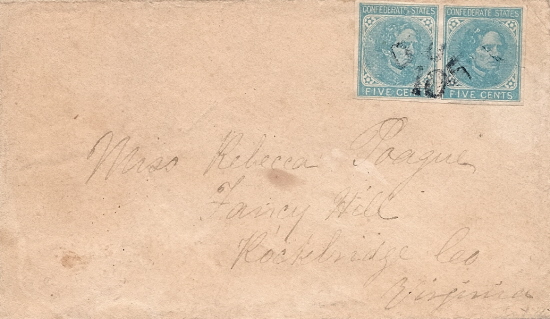 CONFEDERATE STATES CONFEDERATE STATES
10
FIVE CENTS FIVE CENTS
Miss Rebecca Poague
Fancy Hill
Rockbridge Coo
Virginia